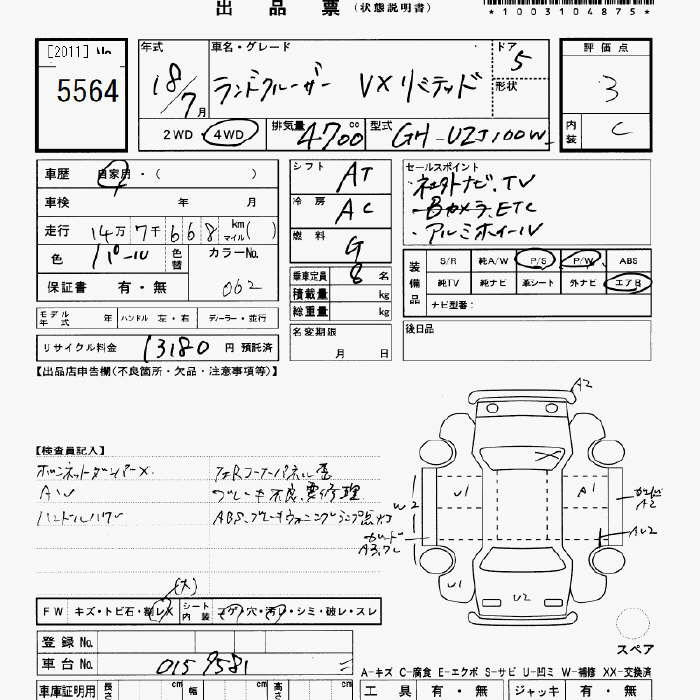 出品票 (状態説明書)
*1003104875*
[2011] No
5564
年式
18/7月
車名・グレード
ランドクルーザー VXリミテッド
ドア
5
形状
2WD ・ 4WD
排気量 4700 cc
型式 GH-UZJ100W
評価点
3
内装
C
車歴 自家用・( )
車検 年 月
走行 14万 7千 6 6 8 km マイル ( )
色 パール
色替
カラーNo.
062
保証書 有・無
シフト AT
冷房 AC
燃料 G
乗車定員 8 名
積載量 kg
総重量 kg
名変期限
月 日
セールスポイント
・社外ナビ.TV
・Bカメラ.ETC
・アルミホイール
装備品
S/R 純A/W P/S P/W ABS
純TV 純ナビ 革シート 外ナビ エアB
ナビ型番:
後日品
モデル年式 年
ハンドル 左・右
ディーラー・並行
リサイクル料金 13180 円 預託済
【出品店申告欄(不良箇所・欠品・注意事項等)】
【検査員記入】
ボンネットダンパーX
AW
ブレーキ不良、要修理
ABS、ブレーキウォーニングランプ点灯
A2
U1
A1
W2
ガード
A2
AU2
ガード
A3,7C
U1
U2
(大)
FW キズ・トビ石・割レX
シート内装 コゲ・穴・汚レ・シミ・破レ・スレ
登録No.
車台No. 0159581
スペア
A-キズ C-腐食 E-エクボ S-サビ U-凹ミ W-補修 XX-交換済
車庫証明用 長さ cm 幅 cm 高さ cm
工具 有・無 ジャッキ 有・無